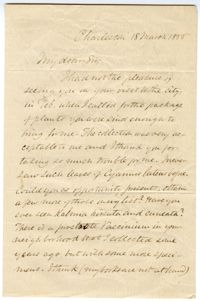 Charleston 18 March 1855
My dear Sir,
I had not the pleasure of
seeing you on your visit to the city
in Feb. when I called for the package
of plants you were kind enough to
bring for me. The collection was very ac-
ceptable to me and I thank you for
taking so much trouble for me. I never
saw such leaves of
Could you opportunity present, obtain
a few more of those very list? Have you
ever seen Kalmia hirsuta and cuneata?
There is a Vaccinium in your
neighborhood that I collected some
years ago but with some more speci-
mens. I think (my books are not at hand)